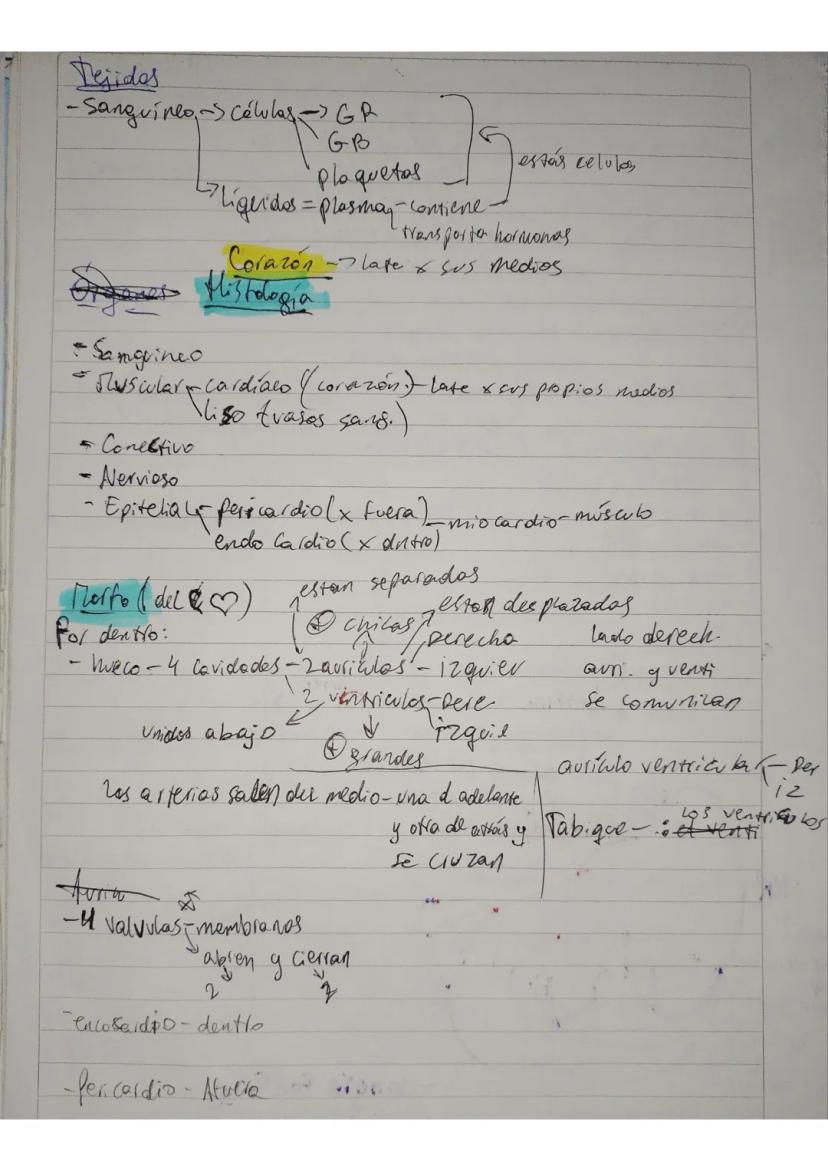 Tejidos
- Sanguíneo -> células -> GR
GB
plaquetas
estás celulas
líquidos = plasma - contiene
transporta hormonas
Corazón -> late x sus medios
Órganos Histología
- Sanguineo
- Muscular - cardíaco (corazón) - late x sus propios medios
liso (vasos sang.)
- Conectivo
- Nervioso
- Epitelial - pericardio (x fuera) - miocardio - músculo
endo cardio (x dntro)
Morfo (del ♡)
estan separadas
⊕ chicas
estan desplazadas
Por dentro:
derecha
lado derech.
- hueco - 4 cavidades - 2 aurículas - izquier
auri. y venti
2 ventriculos - Dere
se comunican
unidos abajo
izquie
⊕ grandes
aurículo ventricular - Der
iz
las arterias salen del medio - una d adelante
y otra de atrás y
se cruzan
Tabique - : el venti los ventriculos
- 4 valvulas - membranas
abren y cierran
2 2
- dentro
- Pericardio - Afuera